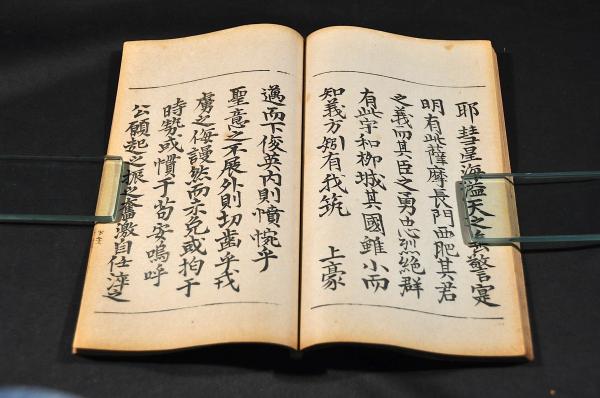 耶彗星海溢天之警寔
明有此薩摩長門西肥其君
之義而其臣之勇忠烈絶群
有此宇和柳城其國雖小而
知義方矧有我筑　上豪
邁而下俊英内則憤惋乎
聖意之不展外則切齒乎戎
虜之侮謾然而或于
時勢或慣于苟安嗚呼
公願起之振之奮激自任淬之